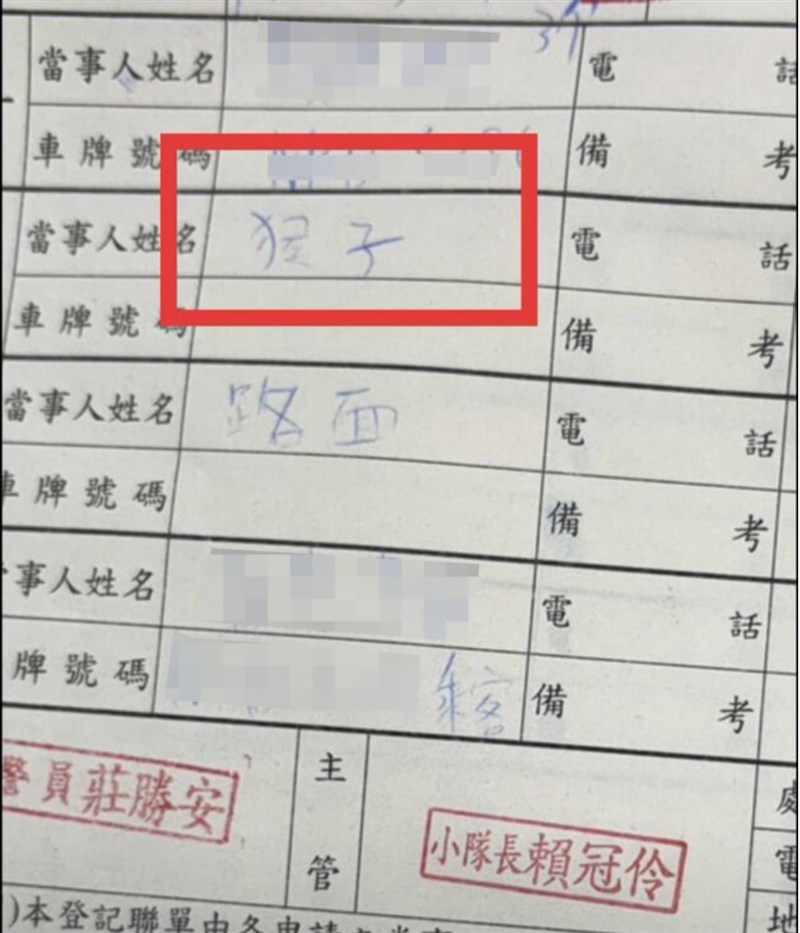 當事人姓名 電話
車牌號碼 備考
當事人姓名 猴子 電話
車牌號碼 備考
當事人姓名 路面 電話
車牌號碼 備考
事人姓名 電話
牌號碼 乘客 備考
警員莊勝安 主管 小隊長賴冠伶 處
電
)本登記聯單由各申請 地